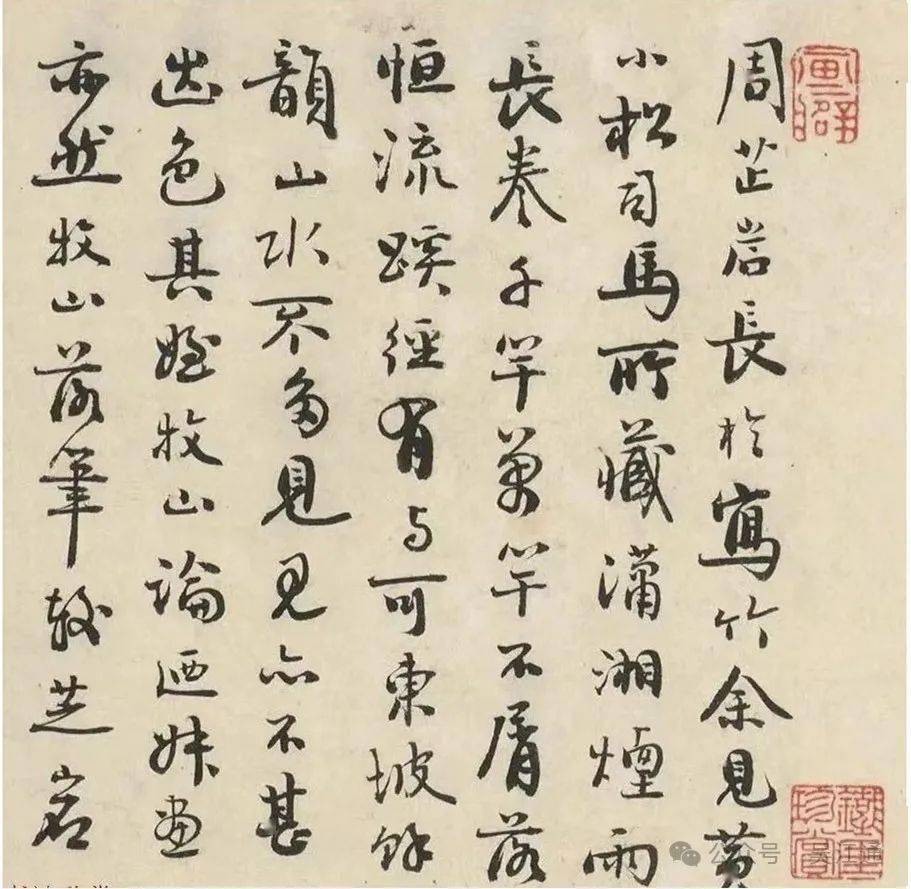 周芷岩長於寫竹余見黃
小松司馬所藏瀟湘煙雨
長卷千竿萬竿不屑落
恒流蹊徑有与可東坡餘
韻山水不多見見亦不甚
出色其姪牧山論迺叔畫
亦然牧山落筆較芷岩
珍賞
公众号 · 吴江通